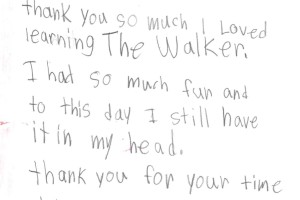 thank you so much I Loved
learning The Walker.
I had so much fun and
to this day I still have
it in my head.
thank you for your time